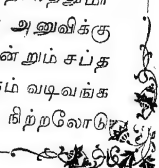 அணுவிக்கு
ன் றும் சப்த
ம் வடிவங்க
நிற்றலோடு